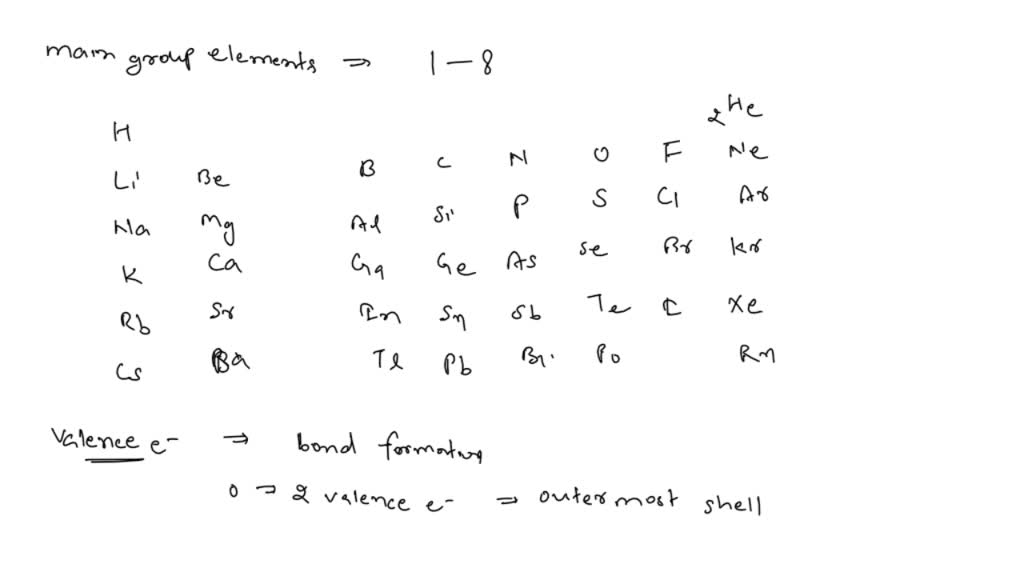 main group elements ⇒ 1 – 8
2He
H
Li Be B C N O F Ne
Na Mg Al Si P S Cl Ar
K Ca Ga Ge As Se Br Kr
Rb Sr In Sn Sb Te I Xe
Cs Ba Tl Pb Bi Po Rn
Valence e⁻ ⇒ bond formation
0 ⇒ 2 valence e⁻ ⇒ outermost shell